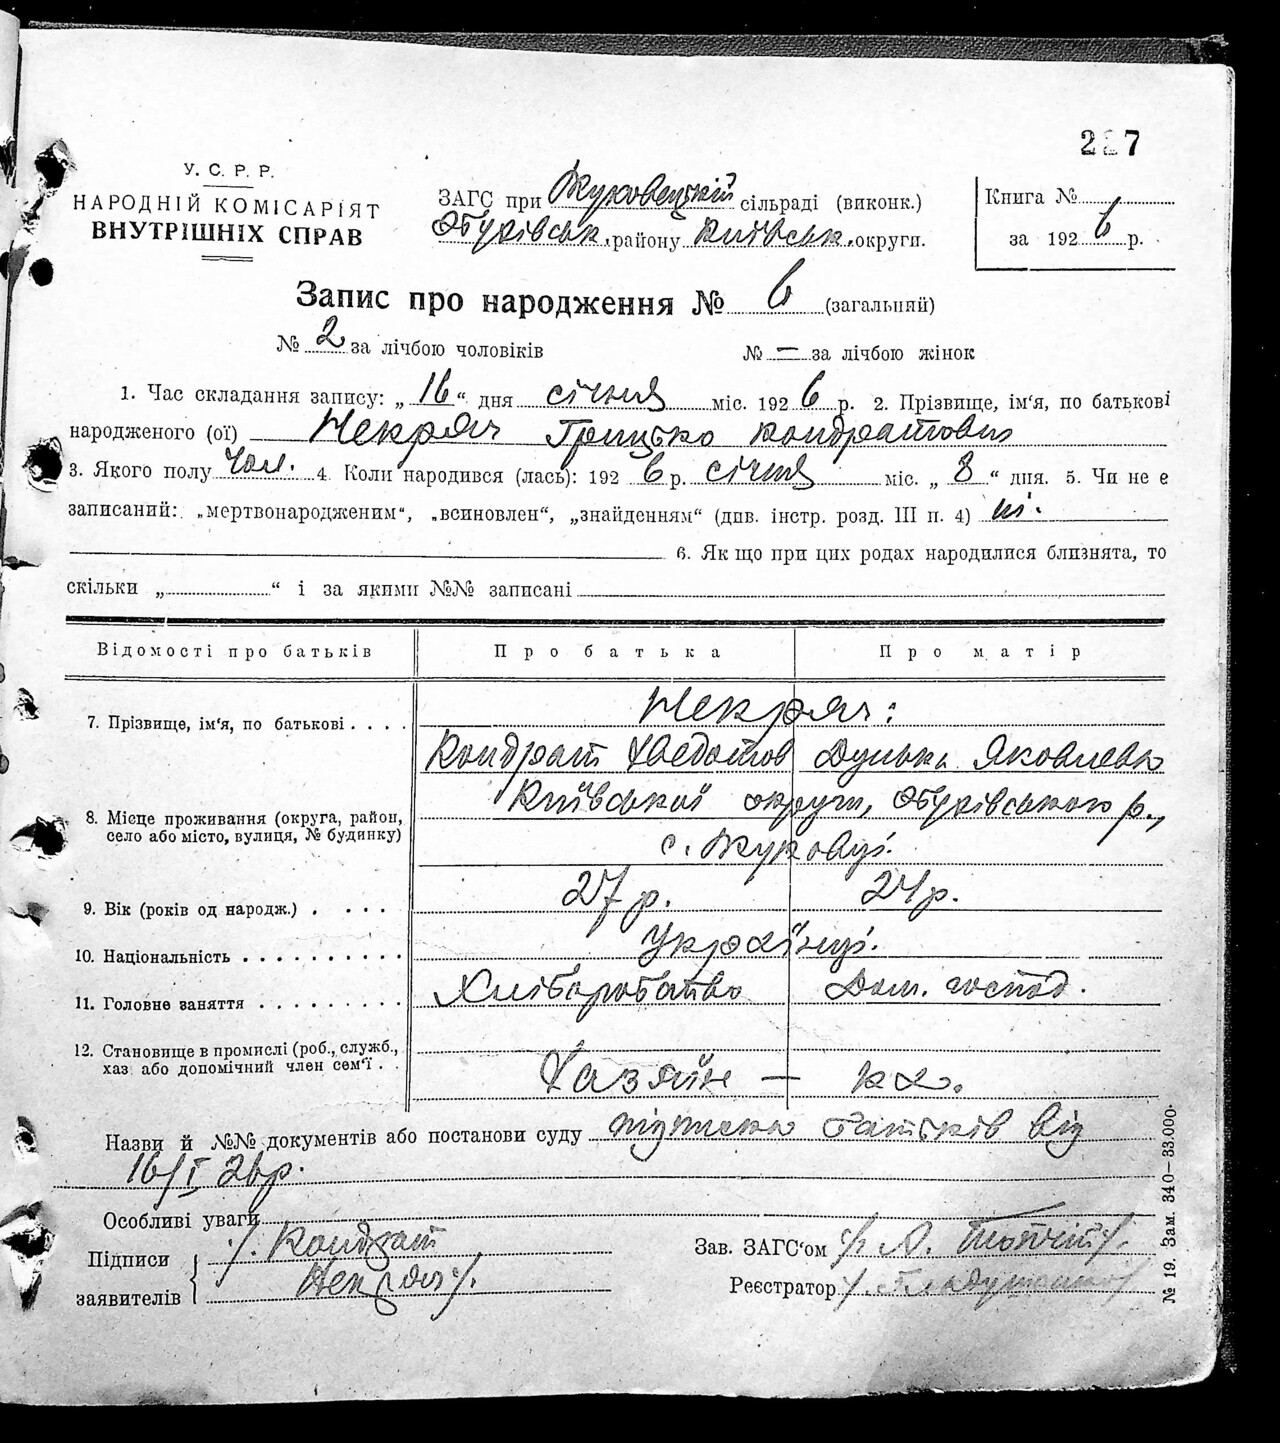 227
У. С. Р. Р.
НАРОДНІЙ КОМІСАРІЯТ
ВНУТРІШНІХ СПРАВ
ЗАГС при Жуковецькій сільраді (виконк.)
Обухівськ. району Київськ. округи.
Книга №
за 1926 р.
Запис про народження № 6 (загальний)
№ 2 за лічбою чоловіків № — за лічбою жінок
1. Час складання запису: „16“ дня січня міс. 1926 р. 2. Прізвище, ім'я, по батькові
народженого (ої) Некряч Грицько Кондратович
3. Якого полу Чол. 4. Коли народився (лась): 1926 р. січня міс. „8“ дня. 5. Чи не є
записаний: „мертвонародженим“, „всиновлен“, „знайденням“ (див. інстр. розд. III п. 4) ні.
6. Як що при цих родах народилися близнята, то
скільки „ “ і за якими №№ записані
Відомості про батьків Про батька Про матір
7. Прізвище, ім'я, по батькові . . . . Некряч:
Кондрат Хведотов Дунька Яковлевна
8. Місце проживання (округа, район, село або місто, вулиця, № будинку) Київської округи, Обухівського р.,
с. Жуковці.
9. Вік (років од народж.) . . . . 27 р. 24 р.
10. Національність . . . . . . . . . . Українці.
11. Головне заняття . . . . . . . . . Хліборобство Дом. господ.
12. Становище в промислі (роб., служб.,
хаз або допомічний член сем'ї . . Хазяїн — ка.
Назви й №№ документів або постанови суду підписка батьків від
16/I 26 р.
Особливі уваги
Підписи заявителів /. Кондрат
Некряч /.
Зав. ЗАГС'ом
Реєстратор
№ 19. Зам. 340—33.000.